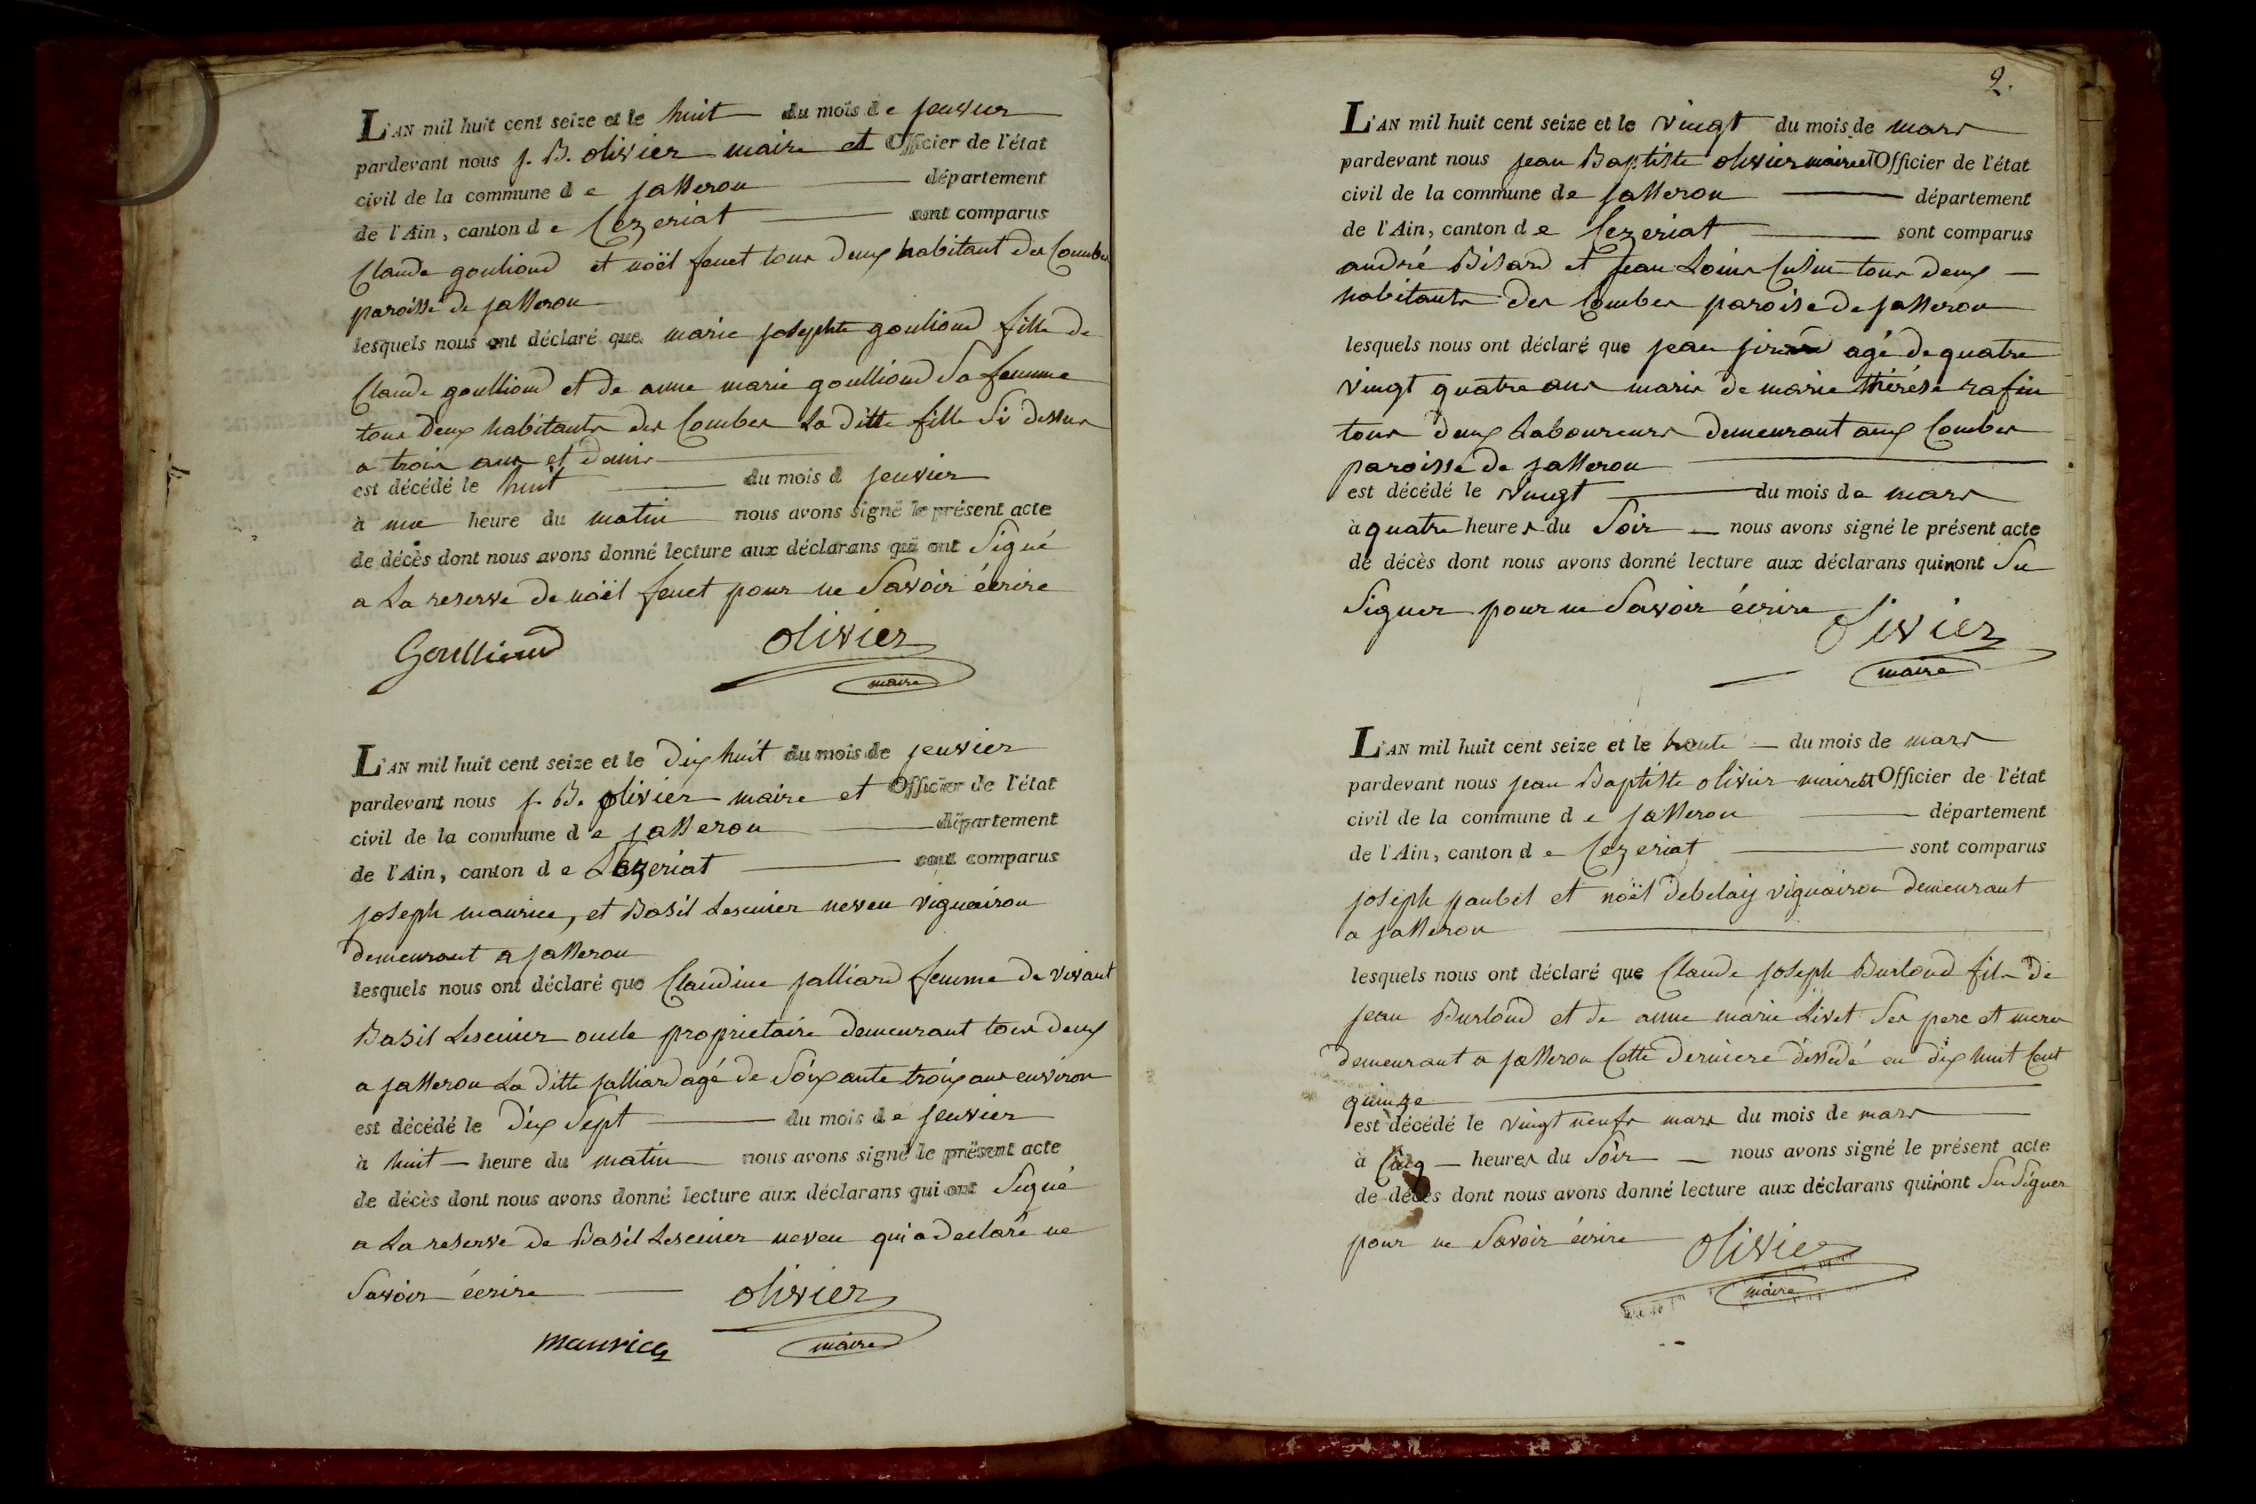 L'AN mil huit cent seize et le huit du mois de jenvier
pardevant nous j. B. olivier maire et Officier de l'état
civil de la commune de jasseron département
de l'Ain, canton de Cezeriat sont comparus
Claude goulioud et noël fenet tous deux habitant des Combes
paroisse de jasseron
lesquels nous ont déclaré que marie josephte goulioud fille de
Claude goullioud et de anne marie goullioud Sa femme
tous deux habitants des Combes La ditte fille Si dessus
a trois ans et demis
est décédé le huit du mois d jenvier
à une heure du matin nous avons signé le présent acte
de décès dont nous avons donné lecture aux déclarans qui ont Signé
a La reserve de noël fenet pour ne Savoir écrire
Goullioud olivier
maire
L'AN mil huit cent seize et le dix huit du mois de jenvier
pardevant nous j. B. olivier maire et Officier de l'état
civil de la commune de jasseron département
de l'Ain, canton de Cezeriat sont comparus
joseph maurice, et Basil Lescuier neveu vigneiron
demeurant a jasseron
lesquels nous ont déclaré que Claudine jalliard femme de vivant
Basil Lescuier oncle proprietaire demeurant tous deux
a jasseron La ditte jalliard agé de Soixante troix ans environ
est décédé le dix Sept du mois de jenvier
à huit heure du matin nous avons signé le présent acte
de décès dont nous avons donné lecture aux déclarans qui ont Signé
a La reserve de Basil Lescuier neveu qui a declaré ne
Savoir écrire olivier
maurice maire
2.
L'AN mil huit cent seize et le vingt du mois de mars
pardevant nous jean Baptiste olivier maire et Officier de l'état
civil de la commune de jasseron département
de l'Ain, canton de Cezeriat sont comparus
andré Bisard et jean Louis tous deux
habitants des Combes paroise de jasseron
lesquels nous ont déclaré que jean agé de quatre
vingt quatre ans maris de marie thérése rafin
tous deux Laboureurs demeurant aux Combes
paroisse de jasseron
est décédé le vingt du mois de mars
à quatre heures du Soir nous avons signé le présent acte
de décès dont nous avons donné lecture aux déclarans qui n'ont Su
Signer pour ne Savoir écrire olivier
maire
L'AN mil huit cent seize et le trente du mois de mars
pardevant nous jean Baptiste olivier maire et Officier de l'état
civil de la commune de jasseron département
de l'Ain, canton de Cezeriat sont comparus
joseph paubel et noël debelay vignairon demeurant
a jasseron
lesquels nous ont déclaré que Claude joseph Burloud fils de
jean Burloud et de anne marie Livet Ses pere et mere
demeurant a jasseron Cette derniere dessédé en dix huit Cent
quinze
est décédé le vingt neufs mars du mois de mars
à Cinq heures du Soir nous avons signé le présent acte
de décès dont nous avons donné lecture aux déclarans qui n'ont Su Signer
pour ne Savoir écrire olivier
maire